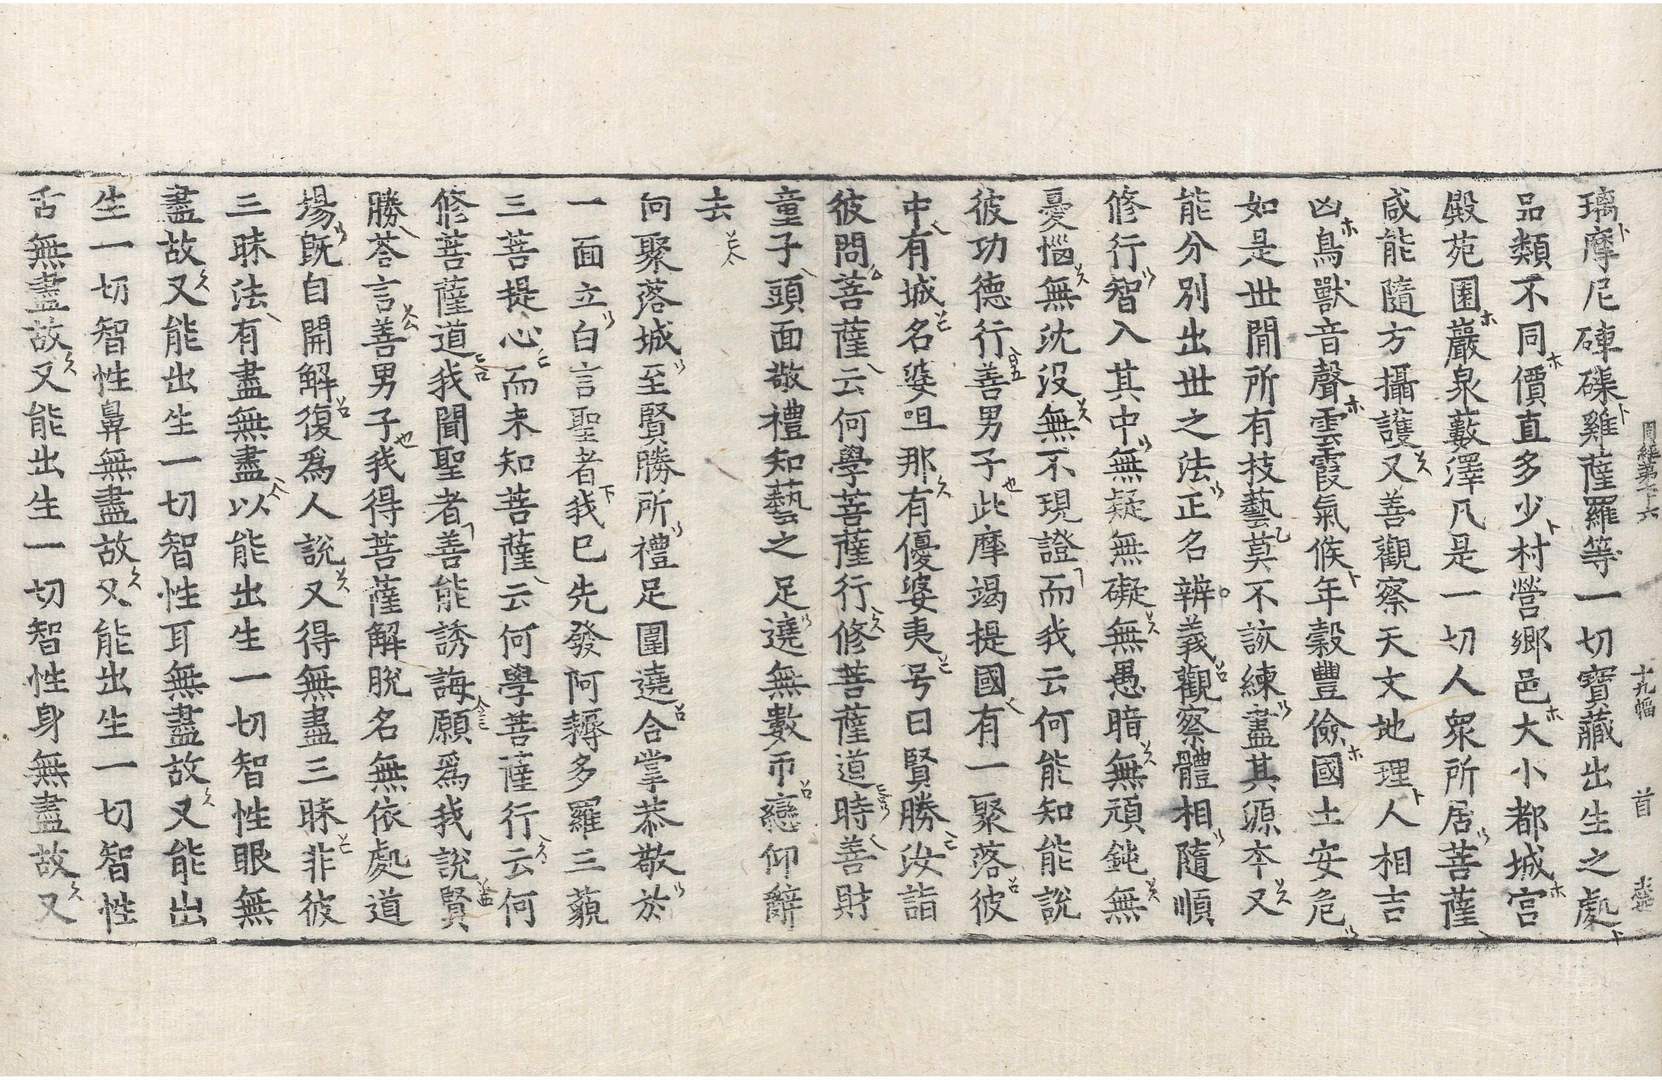 璃摩尼硨磲雞薩羅等一切寶藏出生之處
品類不同價直多少村營鄉邑大小都城宮
殿苑園巖泉藪澤凡是一切人衆所居菩薩
咸能隨方攝護又善觀察天文地理人相吉
凶鳥獸音聲雲霞氣候年穀豐儉國土安危
如是世間所有技藝莫不該練盡其源夲又
能分別出世之法正名辨義觀察體相隨順
修行智入其中無疑無礙無愚暗無頑鈍無
憂惱無沈没無不現證而我云何能知能說
彼功德行善男子此摩竭提國有一聚落彼
中有城名婆咀那有優婆夷号曰賢勝汝詣
彼問菩薩云何學菩薩行修菩薩道時善財
童子頭面敬禮知藝之足遶無數帀戀仰辭
去
向聚落城至賢勝所禮足圍遶合掌恭敬於
一面立白言聖者我已先發阿耨多羅三藐
三菩提心而未知菩薩云何學菩薩行云何
修菩薩道我聞聖者善能誘誨願爲我說賢
勝荅言善男子我得菩薩解脫名無依處道
場旣自開解復爲人說又得無盡三昧非彼
三昧法有盡無盡以能出生一切智性眼無
盡故又能出生一切智性耳無盡故又能出
生一切智性鼻無盡故又能出生一切智性
舌無盡故又能出生一切智性身無盡故又